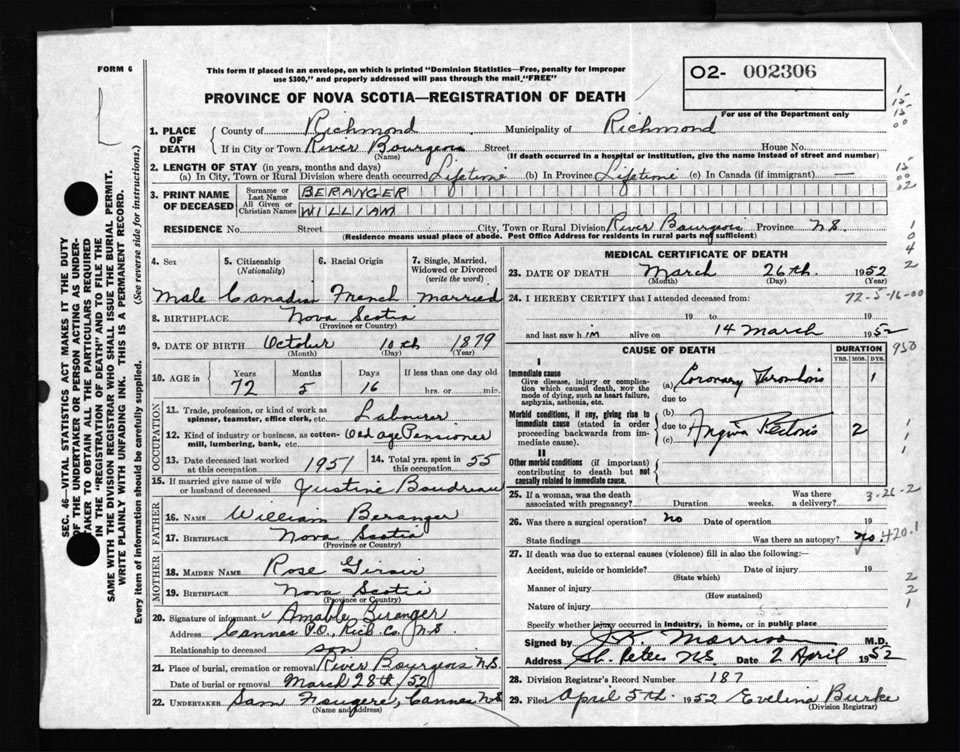 FORM 6
This form if placed in an envelope, on which is printed "Dominion Statistics—Free, penalty for improper
use $300," and properly addressed will pass through the mail, "FREE"
PROVINCE OF NOVA SCOTIA—REGISTRATION OF DEATH
O2- 002306
For use of the Department only
1. PLACE OF DEATH
County of Richmond Municipality of Richmond
If in City or Town River Bourgeois Street House No.
(Name) (If death occurred in a hospital or institution, give the name instead of street and number)
2. LENGTH OF STAY (in years, months and days)
(a) In City, Town or Rural Division where death occurred Lifetime (b) In Province Lifetime (c) In Canada (if immigrant) —
3. PRINT NAME OF DECEASED
Surname or Last Name BERANGER
All Given or Christian Names WILLIAM
RESIDENCE No. Street City, Town or Rural Division River Bourgeois Province N.S.
(Residence means usual place of abode. Post Office Address for residents in rural parts not sufficient)
4. Sex 5. Citizenship (Nationality) 6. Racial Origin 7. Single, Married, Widowed or Divorced (write the word)
Male Canadian French married
8. BIRTHPLACE Nova Scotia
(Province or Country)
9. DATE OF BIRTH October 10th 1879
(Month) (Day) (Year)
10. AGE in Years Months Days If less than one day old
72 5 16 hrs. or min.
OCCUPATION
11. Trade, profession, or kind of work as spinner, teamster, office clerk, etc. Labourer
12. Kind of industry or business, as cotton-mill, lumbering, bank, etc. Old age Pensioner
13. Date deceased last worked at this occupation 1951 14. Total yrs. spent in this occupation 55
15. If married give name of wife or husband of deceased Justine Boudreau
FATHER
16. NAME William Beranger
17. BIRTHPLACE Nova Scotia
(Province or Country)
MOTHER
18. MAIDEN NAME Rose
19. BIRTHPLACE Nova Scotia
(Province or Country)
20. Signature of informant Amable Beranger
Address Cannes P.O., Rich. Co. N.S.
Relationship to deceased son
21. Place of burial, cremation or removal River Bourgeois N.S.
Date of burial or removal March 28th/52
22. UNDERTAKER Sam Fougere, Cannes N.S
(Name and Address)
MEDICAL CERTIFICATE OF DEATH
23. DATE OF DEATH March 26th. 1952
(Month) (Day) (Year)
24. I HEREBY CERTIFY that I attended deceased from:
72-5-16-00
19 to 19
and last saw him alive on 14 March 1952
CAUSE OF DEATH DURATION
YRS. MOS. DYS.
950
I
Immediate cause
Give disease, injury or complication which caused death, NOT the mode of dying, such as heart failure, asphyxia, asthenia, etc.
(a) Coronary Thrombosis 1
due to
Morbid conditions, if any, giving rise to immediate cause (stated in order proceeding backwards from immediate cause).
(b)
due to Angina Pectoris 2
(c)
II
Other morbid conditions (if important) contributing to death but not causally related to immediate cause.
25. If a woman, was the death associated with pregnancy? Duration weeks. Was there a delivery?
3-26-2
26. Was there a surgical operation? No Date of operation 19
State findings Was there an autopsy? No.
420.1
27. If death was due to external causes (violence) fill in also the following:—
Accident, suicide or homicide? Date of injury 19
(State which)
Manner of injury
(How sustained)
Nature of injury
Specify whether injury occurred in industry, in home, or in public place
Signed by J.K. Morrison M.D.
Address St. Peters NS Date 2 April 1952
28. Division Registrar's Record Number 187
29. Filed April 5th. 1952 Evelina Burke
(Division Registrar)
SEC. 46—VITAL STATISTICS ACT MAKES IT THE DUTY
OF THE UNDERTAKER OR PERSON ACTING AS UNDERTAKER TO OBTAIN ALL THE PARTICULARS REQUIRED
IN THE "REGISTRATION OF DEATH" AND TO FILE THE
SAME WITH THE DIVISION REGISTRAR WHO SHALL ISSUE THE BURIAL PERMIT.
WRITE PLAINLY WITH UNFADING INK. THIS IS A PERMANENT RECORD.
Every item of information should be carefully supplied. (See reverse side for instructions.)